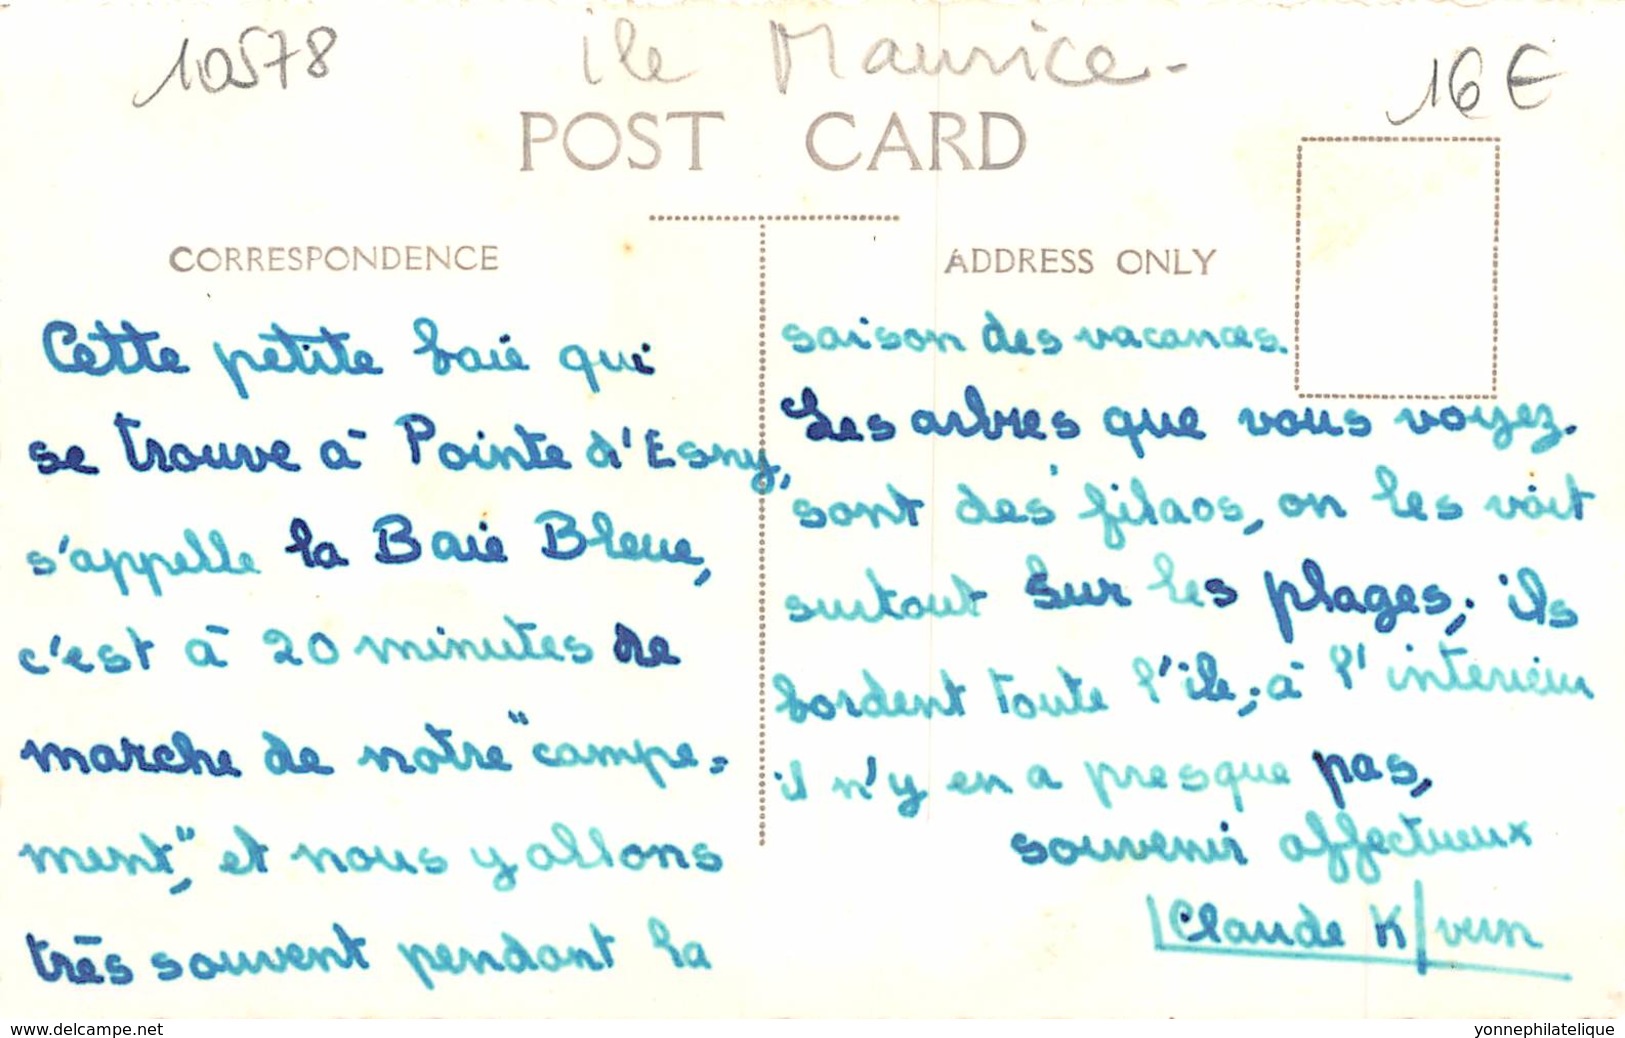 10578
ile Maurice -
16 €
POST CARD
CORRESPONDENCE
ADDRESS ONLY
Cette petite baie qui
se trouve à Pointe d'Esny,
s'appelle la Baie Bleue,
c'est à 20 minutes de
marche de notre "campe=
ment", et nous y allons
très souvent pendant la
saison des vacances.
Les arbres que vous voyez.
sont des filaos, on les voit
surtout sur les plages; ils
bordent toute l'ile; à l'interieur
il n'y en a presque pas,
souvenir affectueux
Claude K/vern
www.delcampe.net
yonnephilatelique